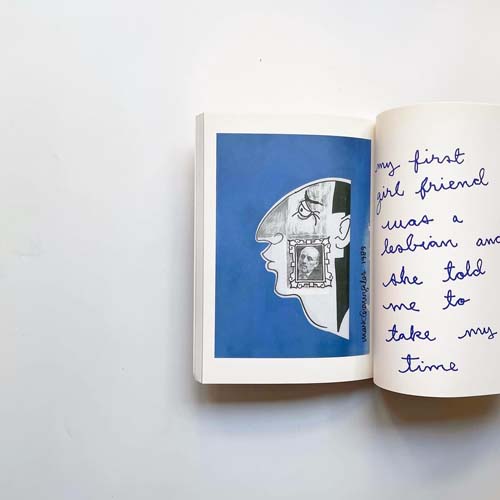 mark Gonzales 1989
my first
girl friend
was a
lesbian and
she told
me to
take my
time